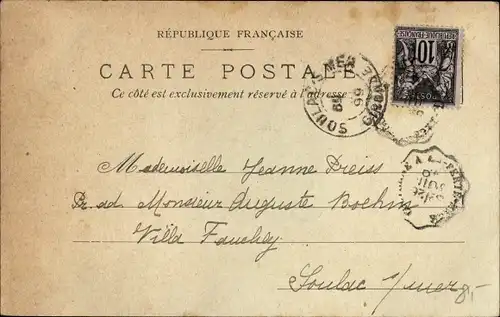 RÉPUBLIQUE FRANÇAISE
CARTE POSTALE
Ce côté est exclusivement réservé à l'adresse
10
SOULAC-S-MER
GIRONDE
99
Mademoiselle Jeanne Dreiss
Pr. ad. Monsieur Auguste Boehm
Villa Fauchey
Soulac s/mer
8,-